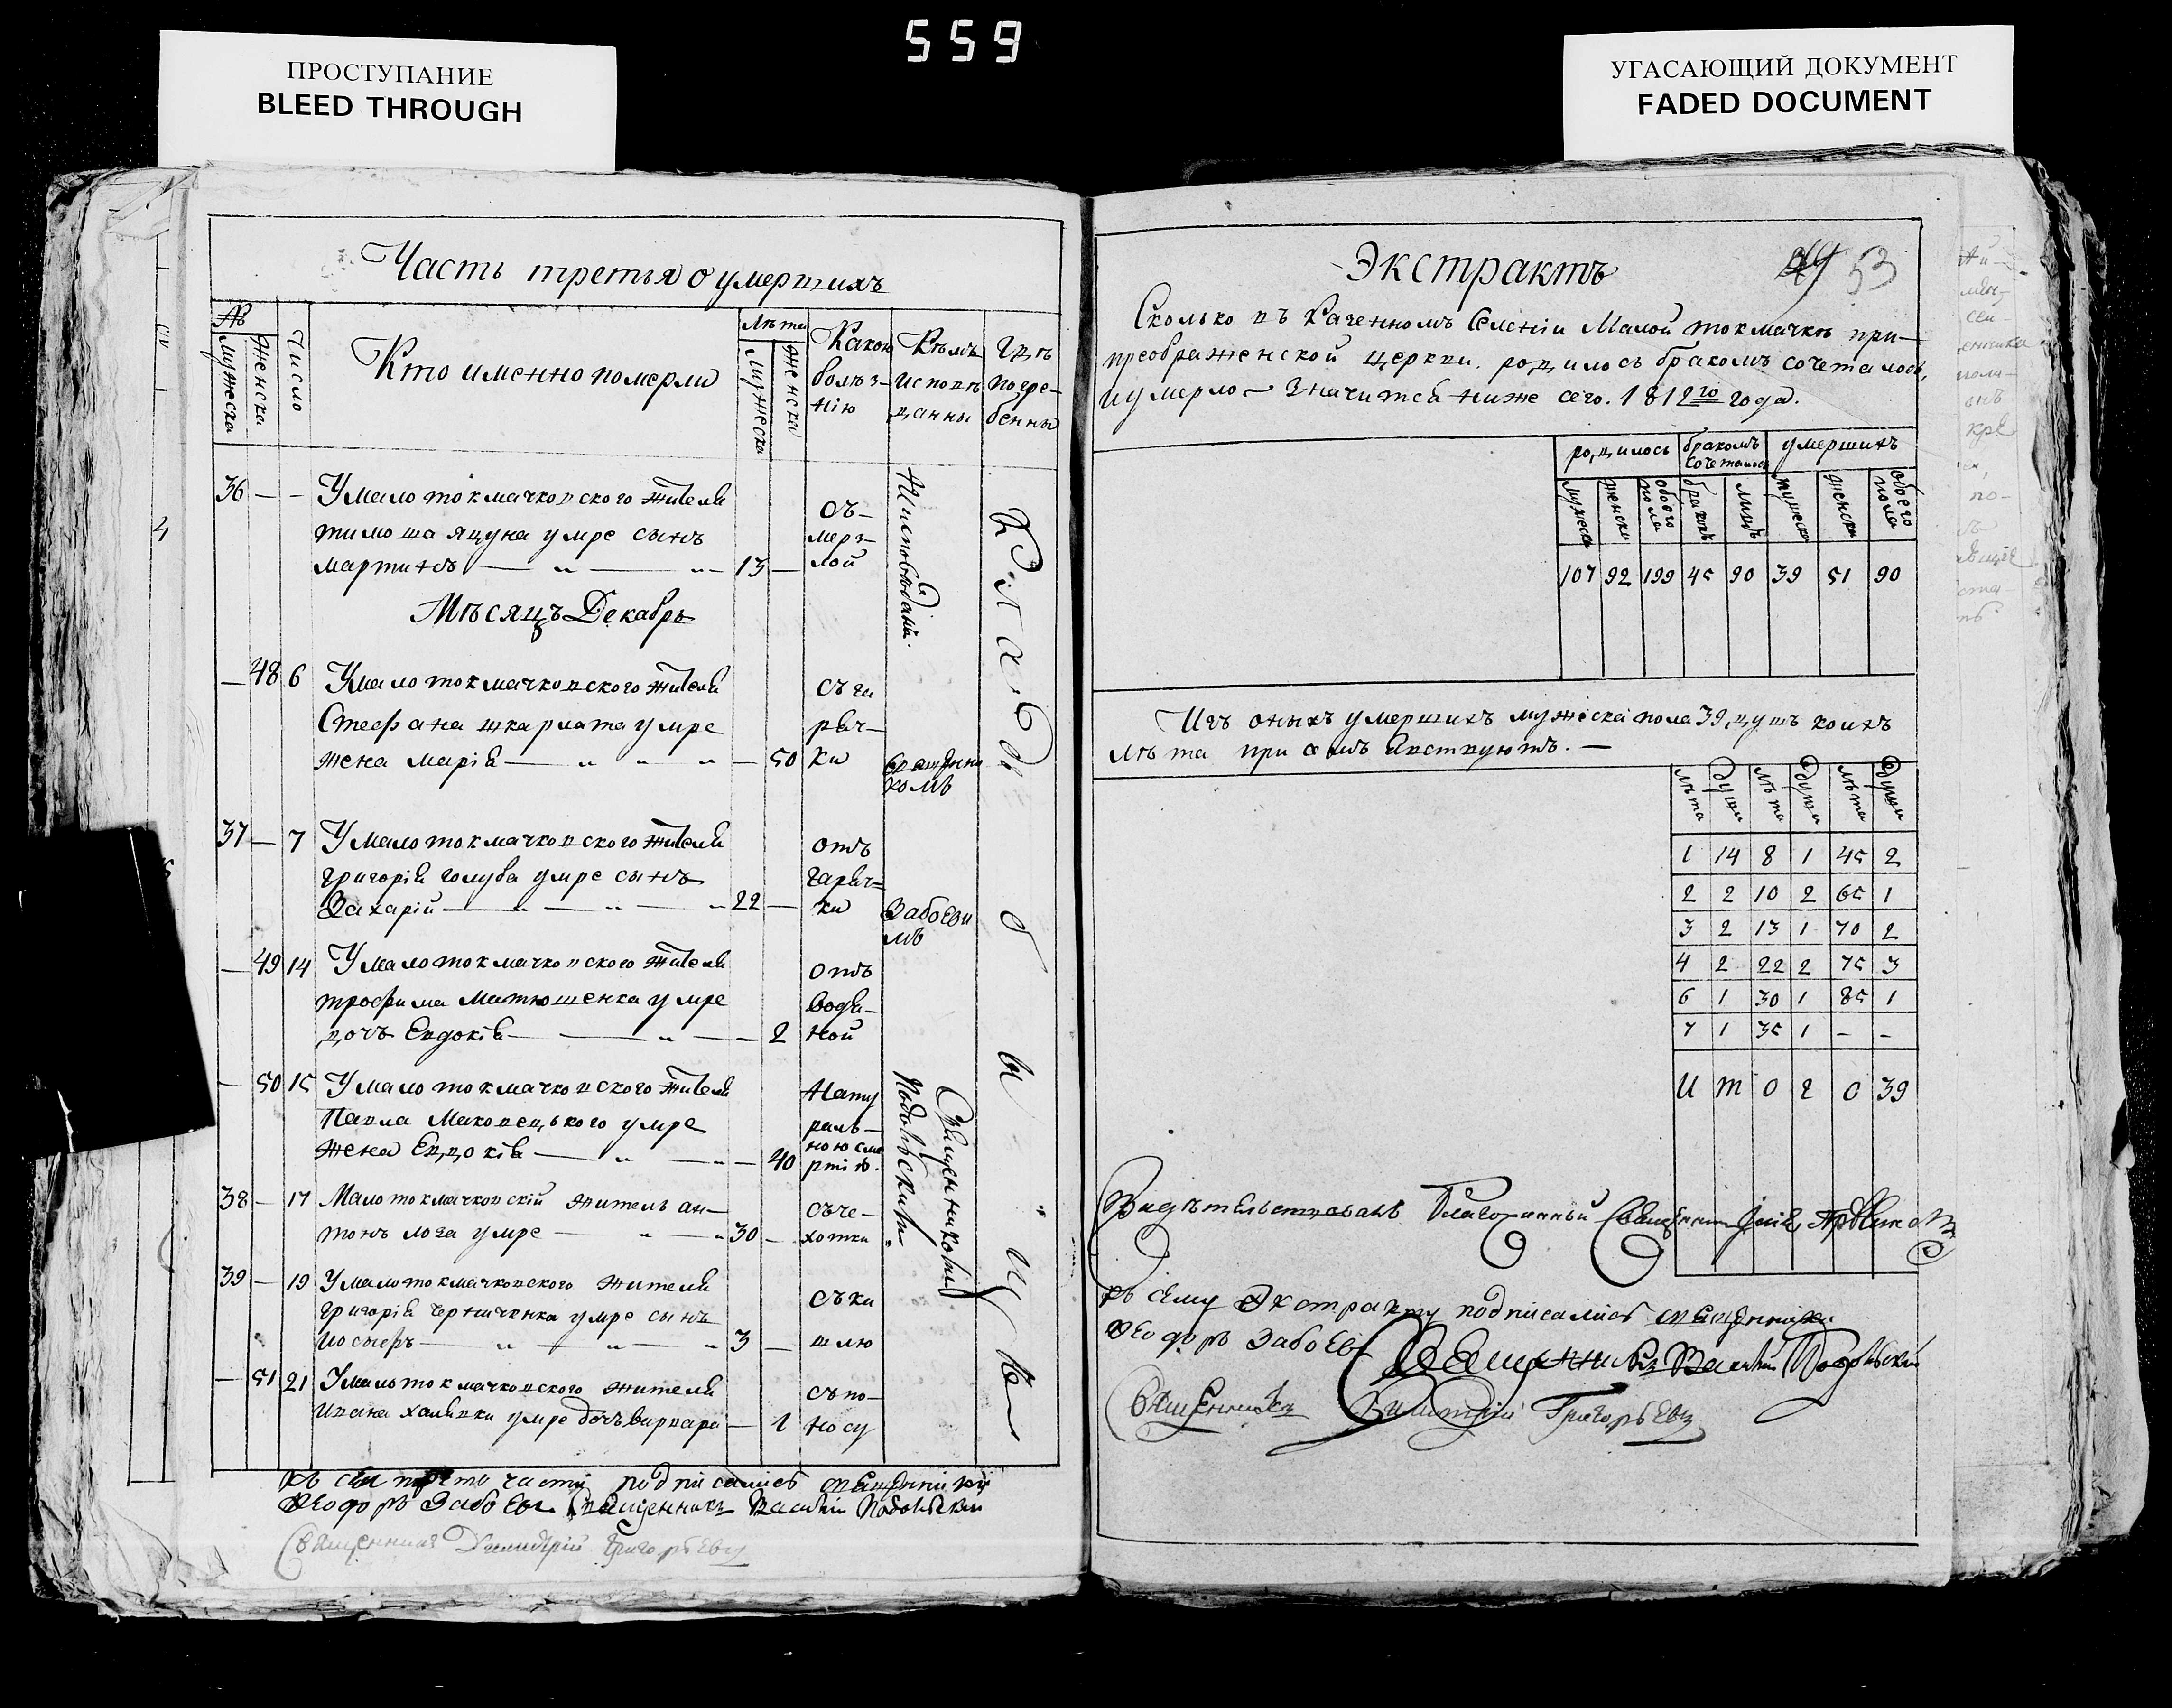 559
ПРОСТУПАНИЕ
BLEED THROUGH
УГАСАЮЩИЙ ДОКУМЕНТ
FADED DOCUMENT
Часть третья о умершихъ
№
Мужеска
Женска
Число
Кто именно померли
Лѣта
Мужеска
Женска
Какою болѣз-
нію
Кѣмъ
исповѣ-
данны
Гдѣ
погре-
бенны
36 — — У малотокмачковского жителя
тимоша яцуна умре сынъ
мартинъ — 13 —
Мѣсяцъ Декабрь
— 48 6 У малотокмачковского жителя
Стефана шкарлата умре
жена марія — — 50
съ га
ряч-
ки
37 — 7 У малотокмачковского жителя
григорія голуба умре сынъ
Захарій — 22 —
отъ
гаряч-
ки
Забоеви
мъ
— 49 14 У малотокмачковского жителя
трофима Матюшенка умре
дочъ Евдокія — — 2
отъ
водя-
ной
— 50 15 У малотокмачковского жителя
Павла Маковецького умре
жена Евдокія — — 40
Нату
раль-
ною сме
ртію.
Священникомъ
Подольскимъ
38 — 17 Малотокмачковскій житель ан-
тонъ лога умре — 30 —
съ че-
хотки
39 — 19 У малотокмачковского жителя
григорія Черниченка умре сынъ
иосифъ — 3 —
съ ка
шлю
— 51 21 У малотокмачковского жителя
Ивана халявки умре дочъ варвара — 1
съ по-
носу
На кладбищѣ
подписались священники
Феодоръ Забоевъ Священникъ Василій Подольскій
Священникъ Димитрій Григорьевъ
Экстрактъ
53
Сколько въ Казенномъ Селеніи Малой токмачкѣ при-
преображенской церкви родилось бракомъ сочеталось,
и умерло — Значится ниже сего. 1812го года.
родилось бракомъ сочеталось умершихъ
мужеска женска обоего пола браковъ лицъ мужеска женска обоего пола
107 92 199 45 90 39 51 90
Изъ оныхъ умершихъ мужеска пола 39, душъ коихъ
лѣта при семъ явствуютъ. —
лѣта души лѣта души лѣта души
1 14 8 1 45 2
2 2 10 2 65 1
3 2 13 1 70 2
4 2 22 2 75 3
6 1 30 1 85 1
7 1 35 1 - -
И т о г о 39
Свидѣтельствовалъ Благочинный
къ сему Экстракту подписались священники
Феодоръ Забоевъ Священникъ Василій Подольскій
Священникъ Димитрій Григорьевъ